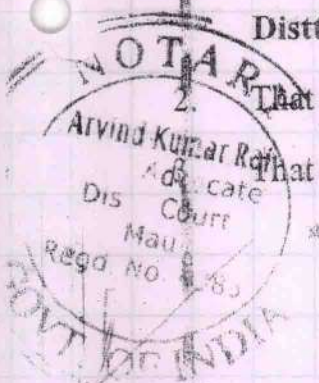 Distt
NOTAR
2. That
Arvind Kumar Rai
That
Advocate
Dis Court
Mau
Regd. No.
GOVT OF INDIA